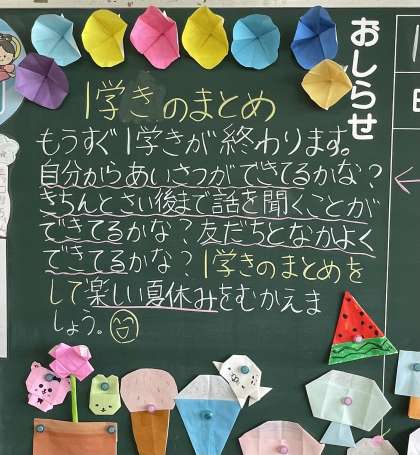 おしらせ
1学きのまとめ
もうすぐ1学きが終わります。
自分からあいさつができてるかな？
きちんとさい後まで話を聞くことが
できてるかな？友だちとなかよく
できてるかな？1学きのまとめを
して楽しい夏休みをむかえま
しょう。